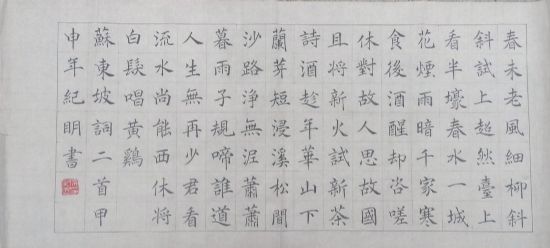 春未老風細柳斜
斜試上超然臺上
看半壕春水一城
花煙雨暗千家寒
食後酒醒却咨嗟
休對故人思故國
且將新火試新茶
詩酒趁年華山下
蘭芽短浸溪松間
沙路淨無泥蕭蕭
暮雨子規啼誰道
人生無再少君看
流水尚能西休將
白髮唱黃鷄
蘇東坡詞二首甲
申年紀明書